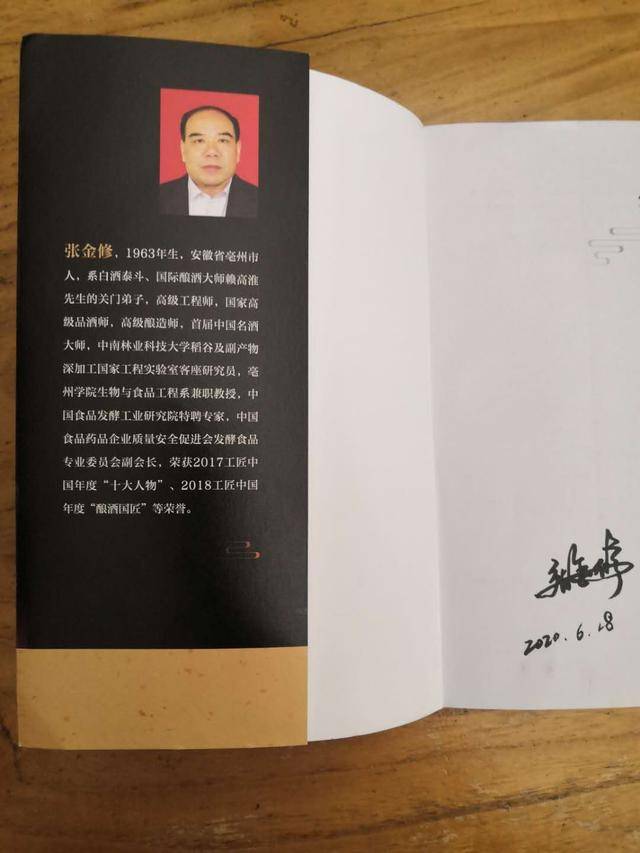 张金修，1963年生，安徽省亳州市
人，系白酒泰斗、国际酿酒大师赖高淮
先生的关门弟子，高级工程师，国家高
级品酒师，高级酿造师，首届中国名酒
大师，中南林业科技大学稻谷及副产物
深加工国家工程实验室客座研究员，亳
州学院生物与食品工程系兼职教授，中
国食品发酵工业研究院特聘专家，中国
食品药品企业质量安全促进会发酵食品
专业委员会副会长，荣获2017工匠中
国年度“十大人物”、2018工匠中国
年度“酿酒国匠”等荣誉。
张金修
2020.6.18